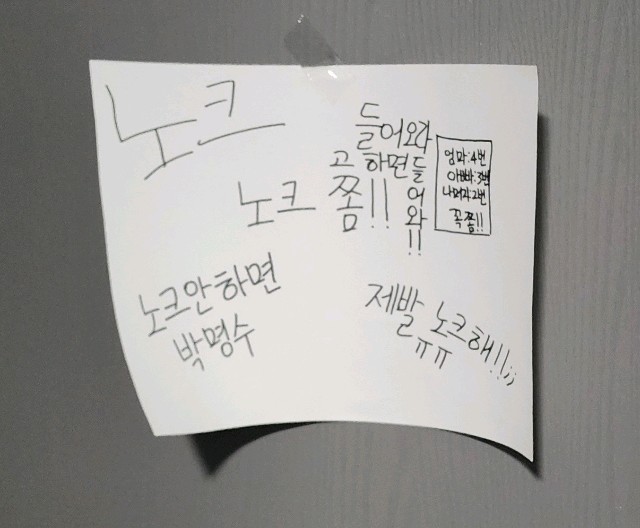 노크
노크 쫌!!
들어오라
고 하면 들
어
와
!!
엄마:4번
아빠:3번
나머지2번
꼭 쫌!!
노크안하면
박명수
제발 노크해!!;;
ㅠㅠ